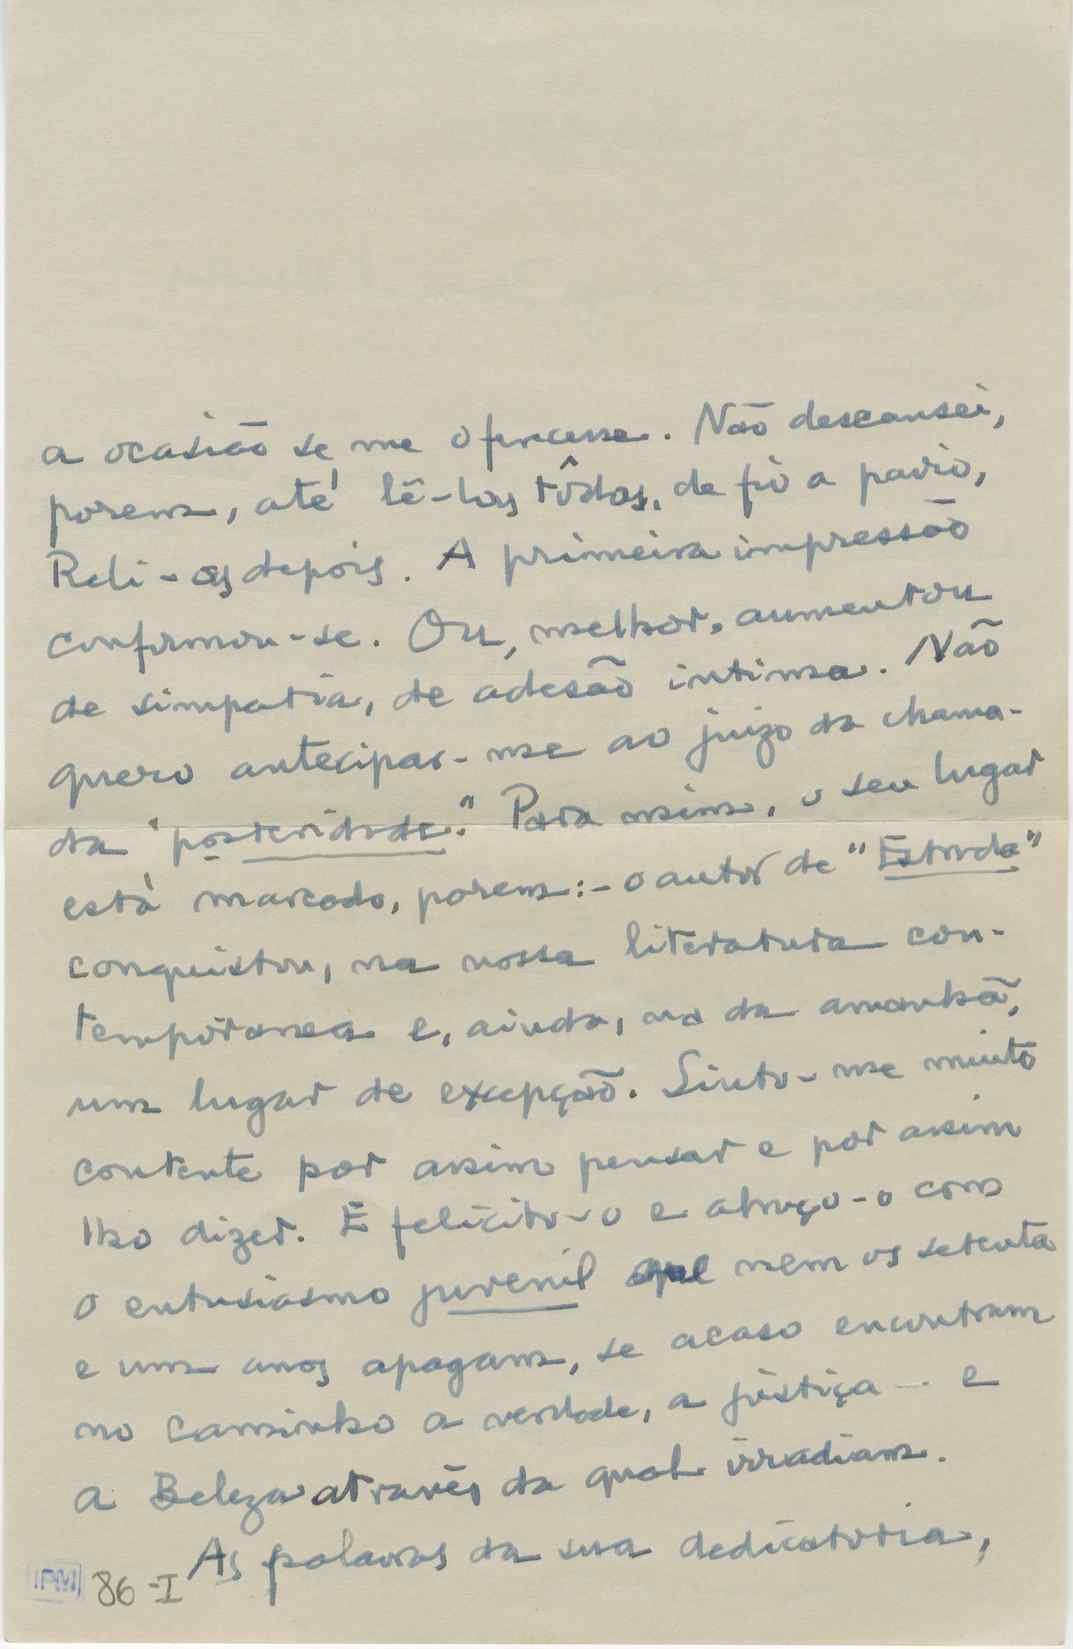 a ocasião se me oferecesse. Não descansei,
porem, até lê-los tôdos, de fio a pavio,
Reli-os depois. A primeira impressão
confirmou-se. Ou, melhor, aumentou
de simpatia, de adesão intima. Não
quero antecipar-me ao juizo da chama-
da "posteridade." Para mim, o seu lugar
está marcado, porem:- o autor de "Estrada"
conquistou, na nossa literatura con-
temporanea e, ainda, na da amanhã,
um lugar de excepção. Sinto-me muito
contente por assim pensar e por assim
lho dizer. E felicito-o e abraço-o com
o entusiasmo juvenil que nem os setenta
e um anos apagam, se acaso encontram
no caminho a verdade, a justiça... e
a Beleza através da qual irradiam.
As palavras da sua dedicatoria,
IPM 86-I